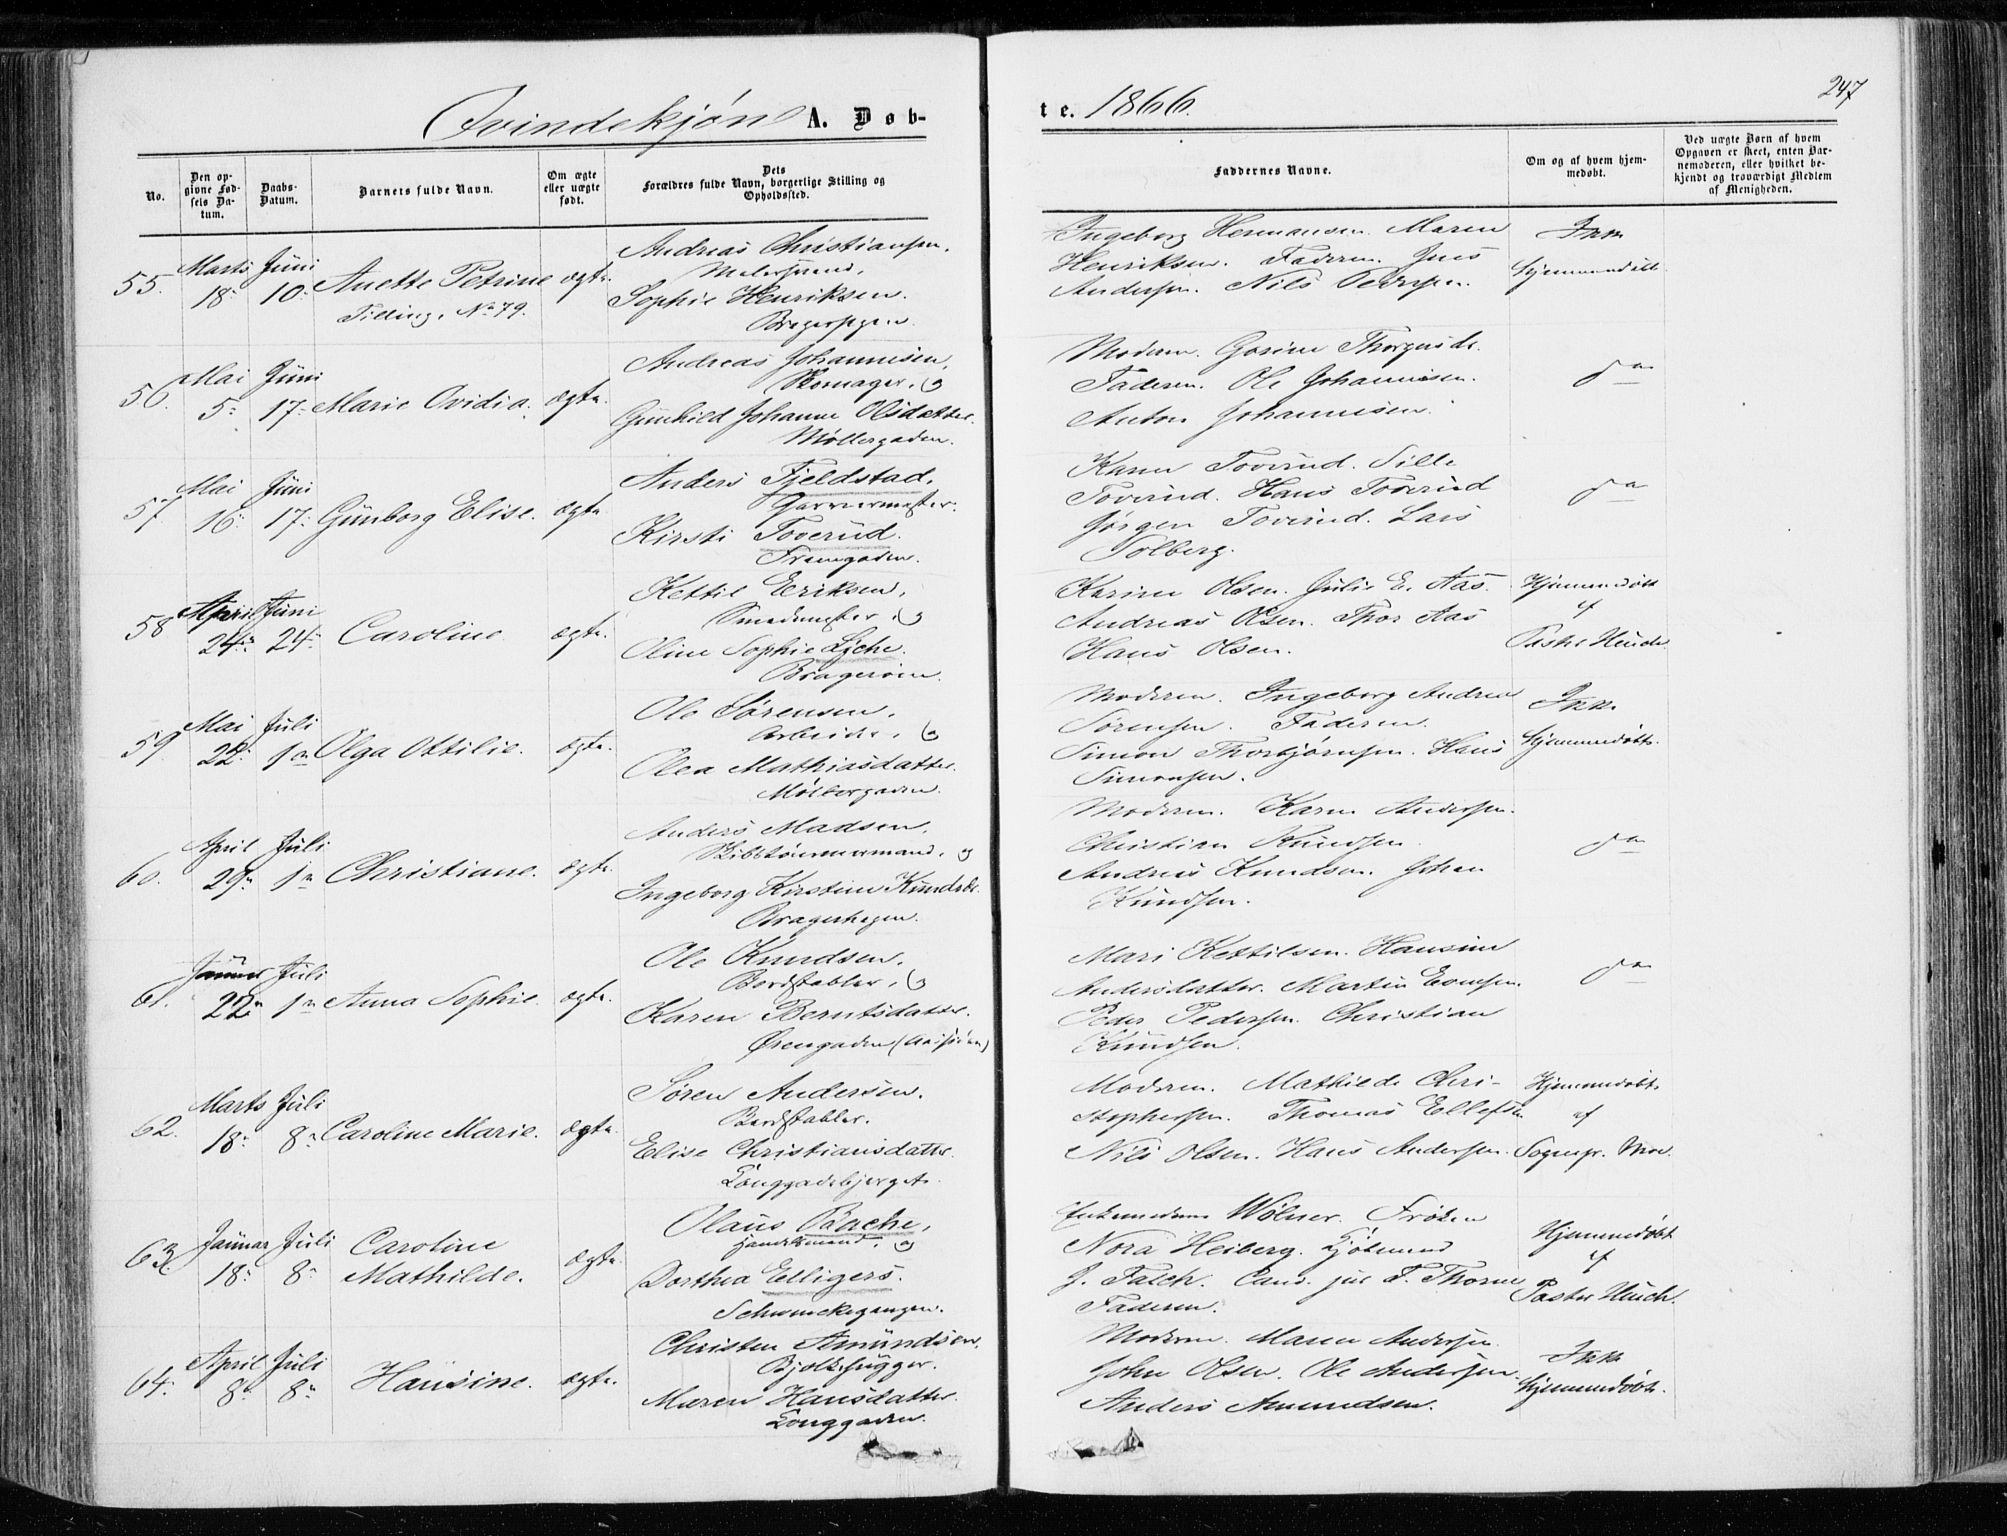 Qvindekjøn A. Døb-
te. 1866.
247
No.
Den op-
givne Fød-
sels Da-
tum.
Daabs-
Datum.
Barnets fulde Navn.
Om ægte
eller uægte
født.
Dets
Forældres fulde Navn, borgerlige Stilling og
Opholdssted.
Faddernes Navne.
Om og af hvem hjem-
medøbt.
Ved uægte Børn af hvem
Opgaven er skeet, enten Bar-
nemoderen, eller hvilket be-
kjendt og troværdigt Medlem
af Menigheden.
55. Marts 18 Juni 10 Anette Petrine ægte.
Tilling. No 79.
Andreas Christiansen,
Sophie Henriksen.
Ingeborg Hermansen. Maren
Henriksen. Faderen. Jens
Andersen. Nils Pedersen.
Ikke
hjemmedøbt.
56. Mai 5 Juni 17 Marie Ovidia. ægte.
Andreas Johannesen,
Skomager, og
Gunhild Johanne Olsdatter.
Møllergaden.
Moderen. Gorine
Faderen. Ole Johannesen.
Anton Johannesen.
do
57 Mai 16 Juni 17 Gunborg Elise. ægte
Anders Fjeldstad,
Garvermester.
Kirsti Toverud.
Karen Toverud. Sille
Toverud. Hans Toverud
Jørgen Toverud. Lars
Solberg.
do
58 April 24 Juni 24 Caroline ægte.
Kettil Eriksen,
Smedmester, og
Oline Sophie Lyche.
Karine Olsen. Julie E. Aas.
Andreas Olsen. Thor Aas
Hans Olsen.
Hjemmedøbt
af
59. Mai 22 Juli 1 Olga Ottilie. ægte.
Ole Sørensen,
Arbeider, og
Olea Mathiasdatter.
Møllergaden.
Moderen. Ingeborg Andrea
Sørensen. Faderen.
Simon Thorbjørnsen. Hans
Simonsen.
Ikke
hjemmedøbt.
60. April 29 Juli 1 Christiane. ægte.
Anders Madsen,
Skibstømmermand, og
Ingeborg Kirstine Knudsdtr.
Bragerhagen.
Moderen. Karen Andersen.
Christian Knudsen.
Andreas Knudsen. Johan
Knudsen.
do
61. Januar 22 Juli 1 Anna Sophie. ægte.
Ole Knudsen,
Bordstabler, og
Karen Berntsdatter.
Mari Kettilsen. Hansine
Andersdatter. Martin
Peder Pedersen. Christian
Knudsen.
do
62. Marts 18 Juli 8 Caroline Marie. ægte.
Søren Andersen.
Bordstabler.
Elise Christiansdatter.
Langgadebjerget.
Moderen. Mathilde Chri-
stophersen. Thomas Ellefsen
Nils Olsen. Hans Andersen.
Hjemmedøbt
af
Sognepr. Moe.
63 Januar 18 Juli 8 Caroline
Mathilde. ægte.
Olaus Bache,
Handelsmand, og
Dorthea Elligers.
Schwenckegangen.
Wølner. Frøken
Nora Heiberg. Kjøbmand
J. Falch. Cand. jur F. Thorne
Faderen.
Hjemmedøbt
af
Pastor Heuch.
64. April 8 Juli 8 Hansine. ægte.
Christen Amundsen,
Bjelkehugger.
Maren Hansdatter.
Langgaden.
Moderen. Maren Andersen.
John Olsen. Ole Andersen.
Anders Amundsen.
Ikke
hjemmedøbt.